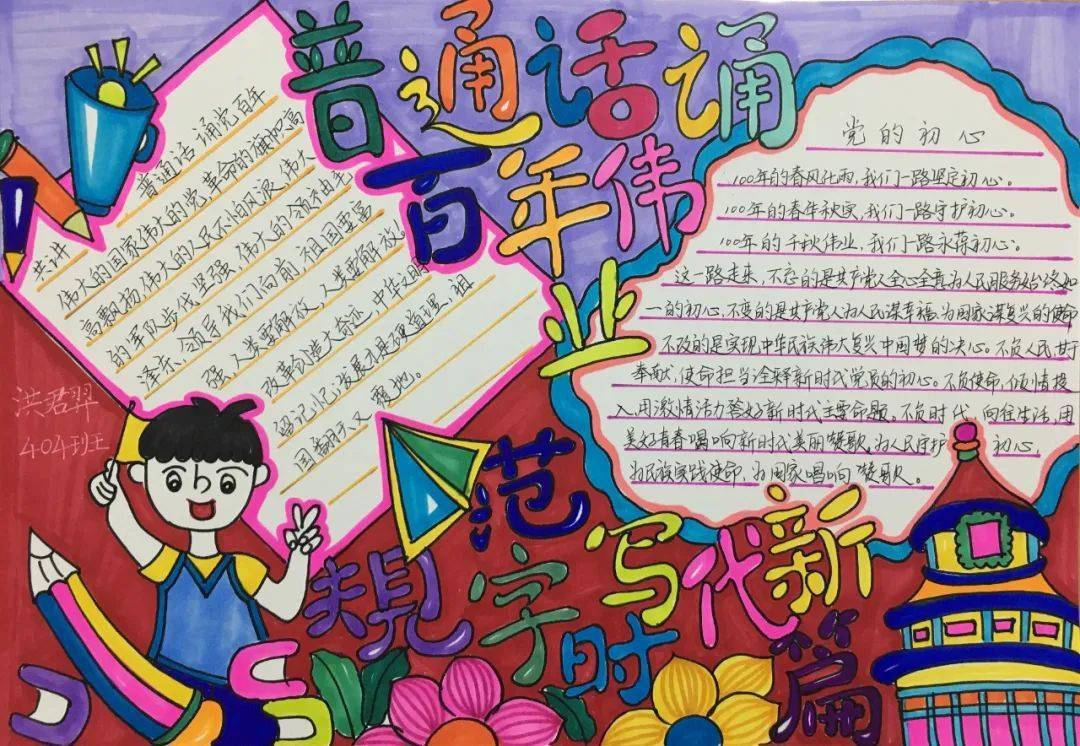 普通话诵
百年伟
业
共讲 普通话 诵党百年
伟大的国家,伟大的党,革命的旗帜高
高飘扬,伟大的人民不怕风浪,伟大
的军队步伐坚强,伟大的领袖毛
泽东,领导我们向前,祖国要富
强,人类要解放,人类要解放。
改革创造大奇迹,中华文明
留记忆;发展是硬道理,祖
国翻天又覆地。
党的初心
100年的春风化雨,我们一路坚定初心。
100年的春华秋实,我们一路守护初心。
100年的千秋伟业,我们一路永葆初心。
这一路走来,不忘的是共产党人全心全意为人民服务始终如
的初心,不变的是共产党人为人民谋幸福,为国家谋复兴的使命
不改的是实现中华民族伟大复兴中国梦的决心。不负人民,甘于
奉献,使命担当诠释新时代党员的初心。不负使命,倾情投
入,用激情活力答好新时代主要命题。不负时代,向往生活,用
美好青春唱响新时代美丽赞歌。为人民守护初心,
为民族实践使命,为国家唱响赞歌。
洪君羿
404班
规范字写
时代新
篇